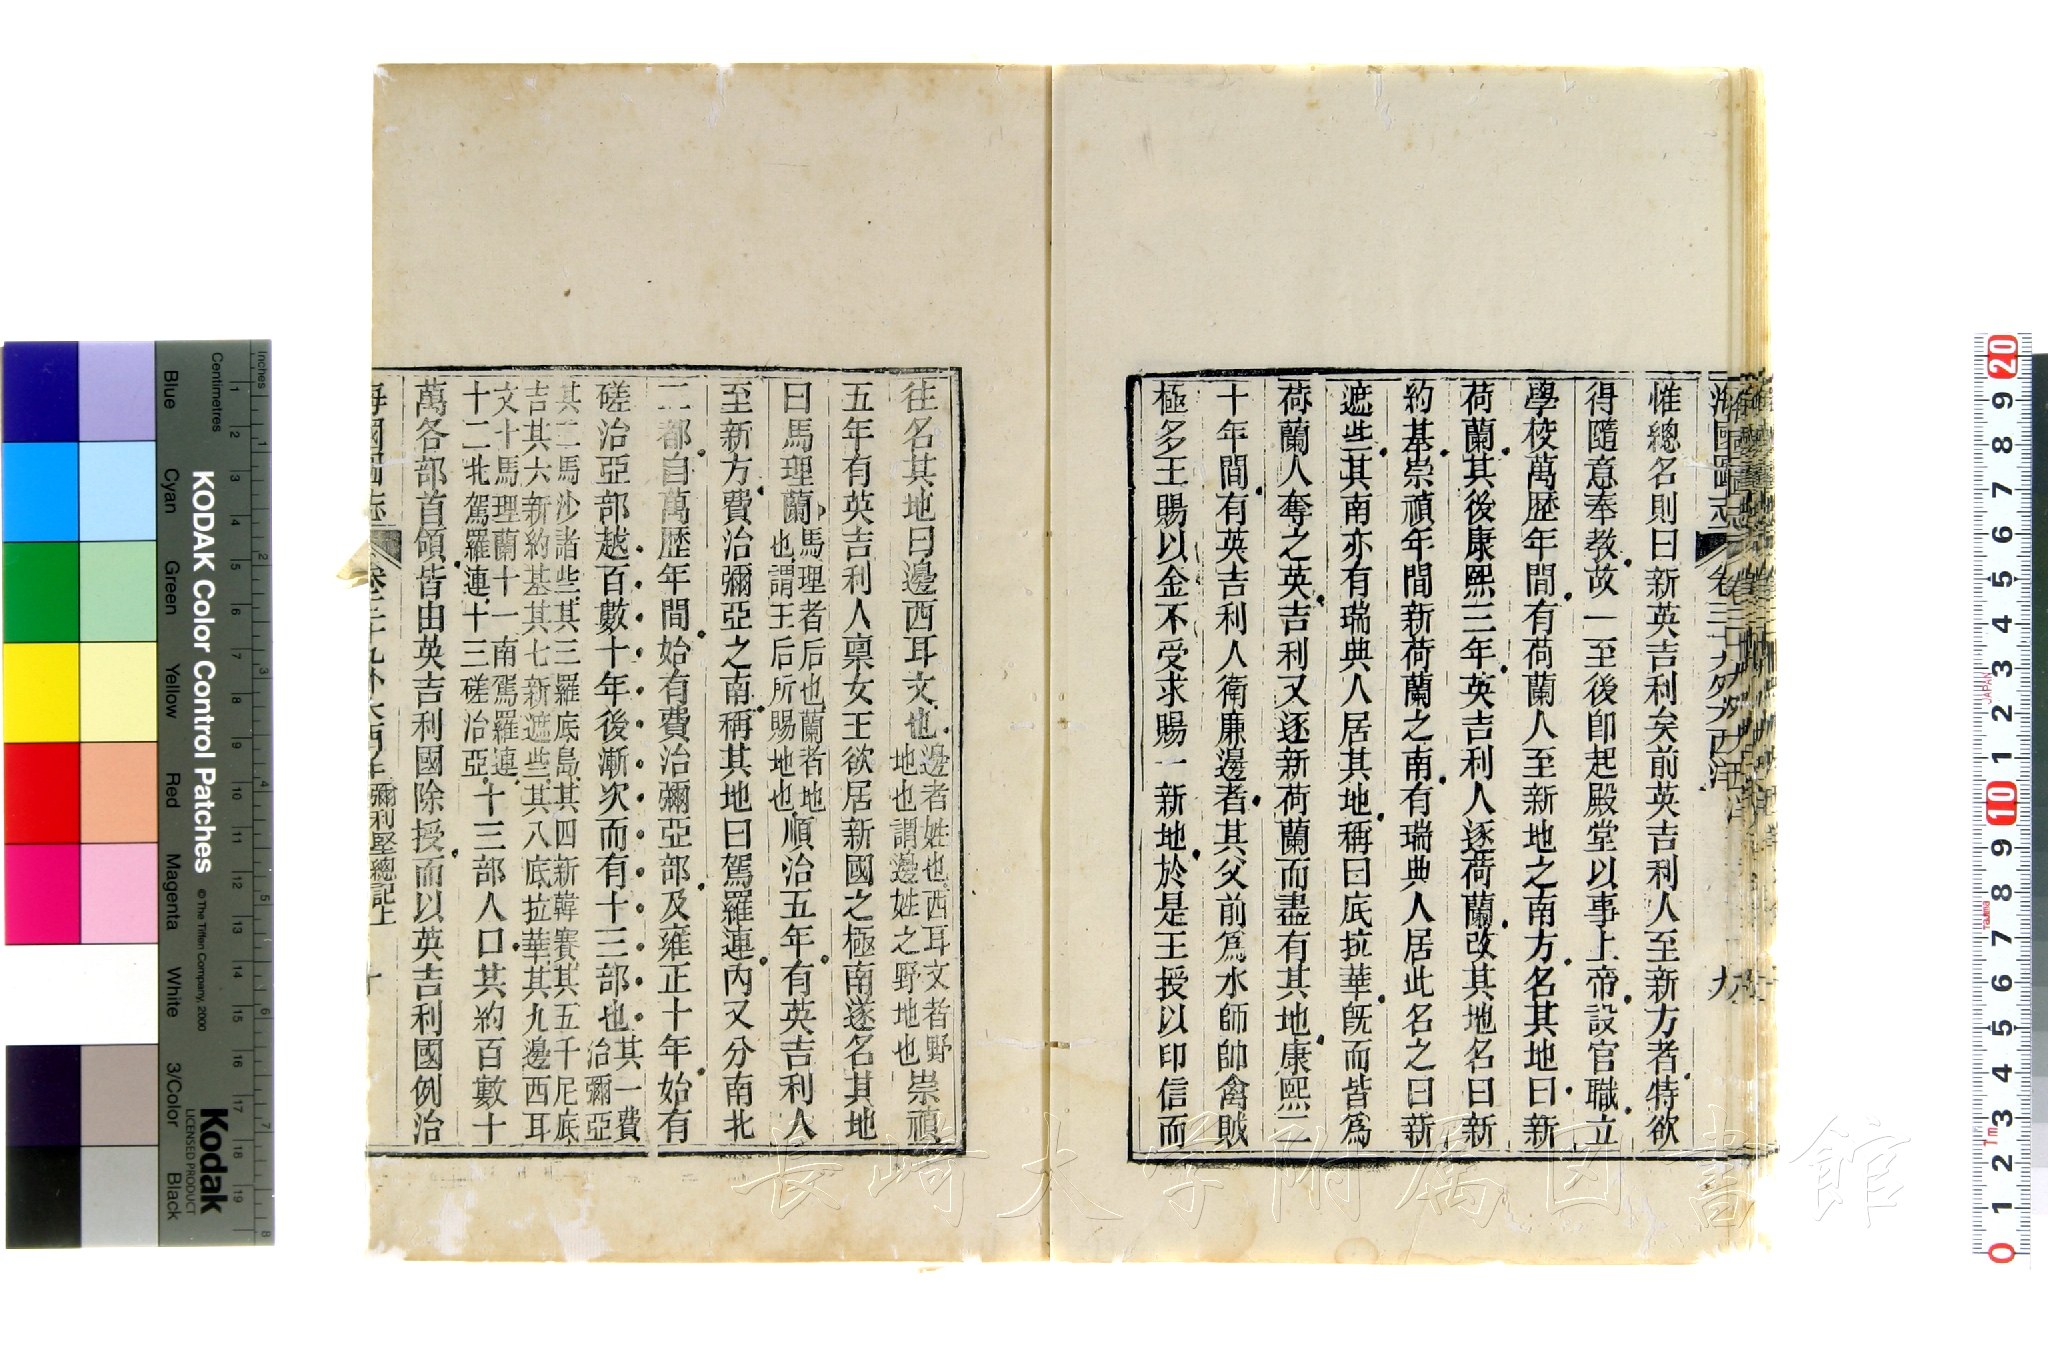 海國圖志 卷三十九 外大西洋 九
惟總名則曰新英吉利矣前英吉利人至新方者特欲
得隨意奉教故一至後卽起殿堂以事上帝設官職立
學校萬歷年間有荷蘭人至新地之南方名其地曰新
荷蘭其後康熙三年英吉利人逐荷蘭改其地名曰新
約基崇禎年間新荷蘭之南有瑞典人居此名之曰新
遮些其南亦有瑞典人居其地稱曰底拉華旣而皆爲
荷蘭人奪之英吉利又逐新荷蘭而盡有其地康熙二
十年間有英吉利人衛廉邊者其父前爲水師帥禽賊
極多王賜以金不受求賜一新地於是王授以印信而
往名其地曰邊西耳文也邊者姓也西耳文者野
地也謂邊姓之野地也崇禎
五年有英吉利人稟女王欲居新國之極南遂名其地
曰馬理蘭馬理者后也蘭者地
也謂王后所賜地也順治五年有英吉利人
至新方費治彌亞之南稱其地曰駕羅連內又分南北
二都自萬歷年間始有費治彌亞部及雍正十年始有
磋治亞部越百數十年後漸次而有十三部也其一費
治彌亞
其二馬沙諸些其三羅底島其四新韓賽其五千尼底
吉其六新約基其七新遮些其八底拉華其九邊西耳
文十馬理蘭十一南駕羅連
十二北駕羅連十三磋治亞十三部人口其約百數十
萬各部首領皆由英吉利國除授而以英吉利國例治
海國圖志 卷三十九 外大西洋 彌利堅總記上 十
Inches
Centimetres
KODAK Color Control Patches
©The Tiffen Company, 2000
Kodak
LICENSED PRODUCT
Blue Cyan Green Yellow Red Magenta White 3/Color Black
長崎大学附属図書館
JAPAN